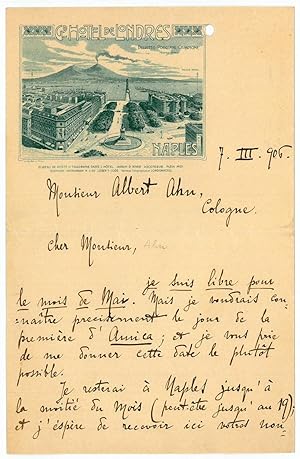 Gd. HOTEL de LONDRES
NAPLES
7. III. 906
Monsieur Albert Ahn,
Cologne.
Cher Monsieur, Ahn
je suis libre pour
le mois de Mai. Mais je voudrais con-
naître precisément le jour de la
première d'Amica; et je vous prie
de me donner cette date le plutôt
possible.
Je resterai à Naples jusqu'à
la moitié du mois (peut-être jusqu'au 19);
et j'éspère de recevoir ici votres nou-